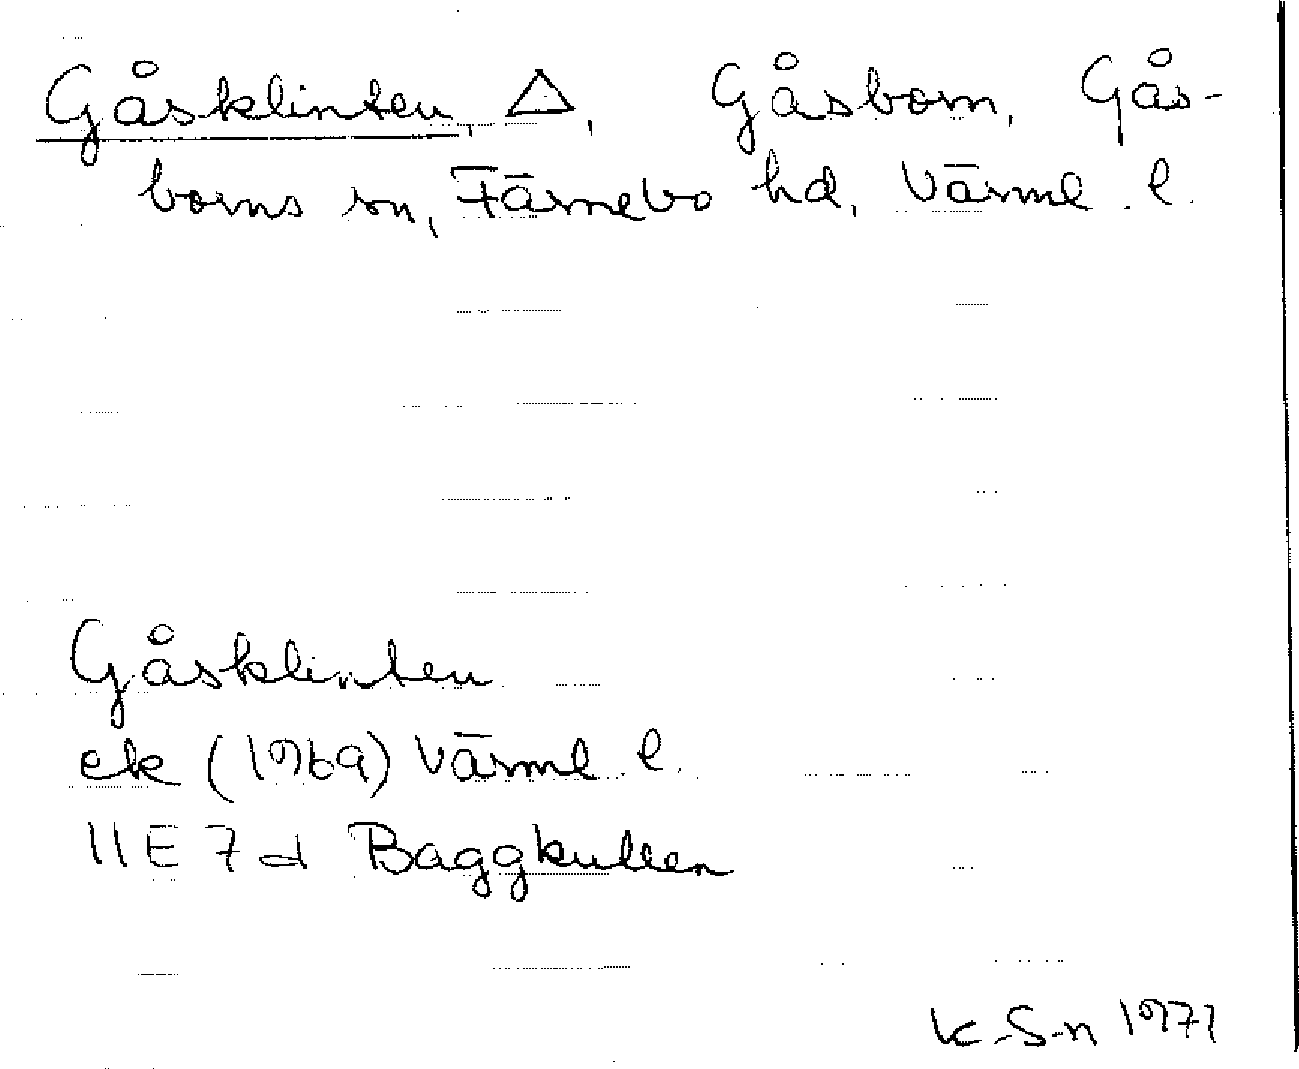 Gåsklinten, △, Gåsborn, Gås-
borns sn, Färnebo hd, Värml. l.
Gåsklinten
ek (1969) Värml. l.
11E 7d Baggkullen
K. S-n 1971